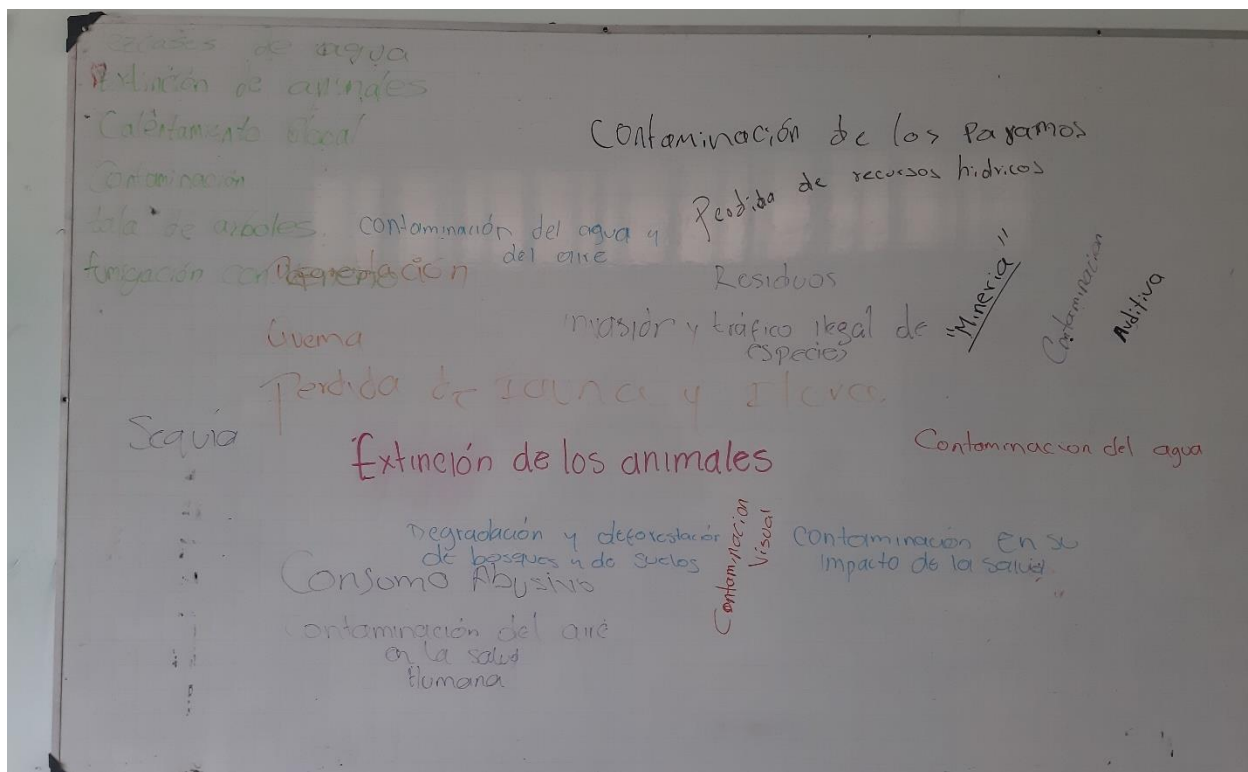 de agua
Extinción de animales
Calentamiento Global
Contaminación
tala de arboles
fumigación con
Contaminación de los Paramos
Perdida de recursos hidricos
contaminación del agua y
del aire
Residuos
"Mineria"
Contaminacion
Auditiva
invasión y tráfico ilegal de
especies
Perdida de fauna y flora
Sequia
Extinción de los animales
Contaminacion del agua
Degradación y deforestación
de bosques y de suelos
Contaminacion
Visual
contaminación en su
impacto de la salud
Consumo Abusivo
contaminación del aire
en la salud
Humana